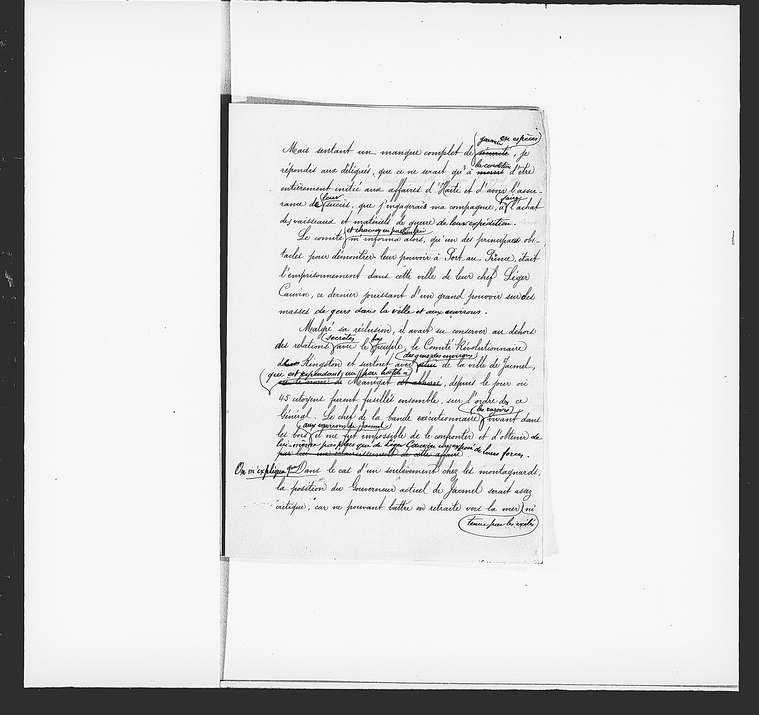 garantie en espèces
Mais sentant un manque complet de sincérité, je
la condition
répondis aux délégués, que ce ne serait qu'à moins d'être
entièrement initié aux affaires d'Haïti et d'avoir l'assu-
leur faire
rance de succès, que j'engagerais ma compagnie, à l'achat
des vaisseaux et matériels de guerre de leur expédition.
et chacun en particulier
Le comité m'informa alors, qu'un des principaux obs-
tacles pour démontrer leur pouvoir à Port-au-Prince, était
l'emprisonnement dans cette ville de leur chef Léger
Cauvin, ce dernier jouissant d'un grand pouvoir sur des
masses de gens dans la ville et aux environs.
Malgré sa réclusion, il avait su conserver au dehors
secrètes
des relations avec le peuple, le Comité Révolutionnaire
des gens des environs
de Kingston et surtout avec de la ville de Jacmel,
qui est cependant hostile à
Manigat est abhorré, depuis le jour où
45 citoyens furent fusillés ensemble, sur l'ordre de ce
Général. Le chef de la bande exécutionnaire vivant dans
aux environs de Jacmel
les bois il me fut impossible de le confronter et d'obtenir de
lui-même pas plus que de Léger Cauvin un exposé de leurs forces.
On m'expliqua que Dans le cas d'un soulèvement chez les montagnards,
la position du Gouverneur actuel de Jacmel serait assez
critique, car ne pouvant battre en retraite vers la mer ni
tenue par les exilés